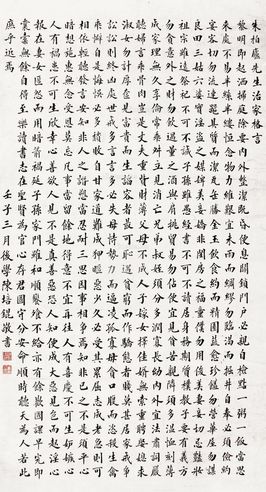 朱柏廬先生治家格言
黎明即起洒掃庭除要內外整潔既昏便息關鎖門戶必親自檢點一粥一飯當思
來處不易半絲半縷恒念物力維艱宜未雨而綢繆勿臨渴而掘井自奉必須儉約
宴客切勿留連器具質而潔瓦缶勝金玉飲食約而精園蔬愈珍饈勿營華屋勿謀
良田三姑六婆實淫盜之媒婢美妾嬌非閨房之福童僕勿用俊美妻妾切忌艷妝
祖宗雖遠祭祀不可不誠子孫雖愚經書不可不讀居身務期質樸教子要有義方
勿貪意外之財勿飲過量之酒與肩挑貿易勿佔便宜見貧苦親鄰須多溫恤刻薄
成家理無久享倫常乖舛立見消亡兄弟叔姪須分多潤寡長幼內外宜法肅辭嚴
聽婦言乖骨肉豈是丈夫重貲財薄父母不成人子嫁女擇佳婿毋索重聘娶媳求
淑女勿計厚奩見富貴而生諂容者最可恥遇貧窮而作驕態者賤莫甚居家戒爭
訟訟則終凶處世戒多言言多必失毋恃勢力而凌逼孤寡毋貪口腹而恣殺生禽
乖僻自是悔誤必多頹惰自甘家道難成狎暱惡少久必受其累屈志老成急則可
相依輕聽發言安知非人之譖愬當忍耐三思因事相爭焉知非我之不是須平心
暗想施惠無念受恩莫忘凡事當留餘地得意不宜再往人有喜慶不可生妒嫉心
人有禍患不可生欣幸心善欲人見不是真善惡恐人知便是大惡見色而起淫心
報在妻女匿怨而用暗箭禍延子孫家門雖和順饔飧不給亦有餘歡國課早完即
囊橐無餘自得至樂讀書志在聖賢為官心存君國守分安命順時聽天為人若此
庶乎近焉
壬子三月後學陳培錕敬書